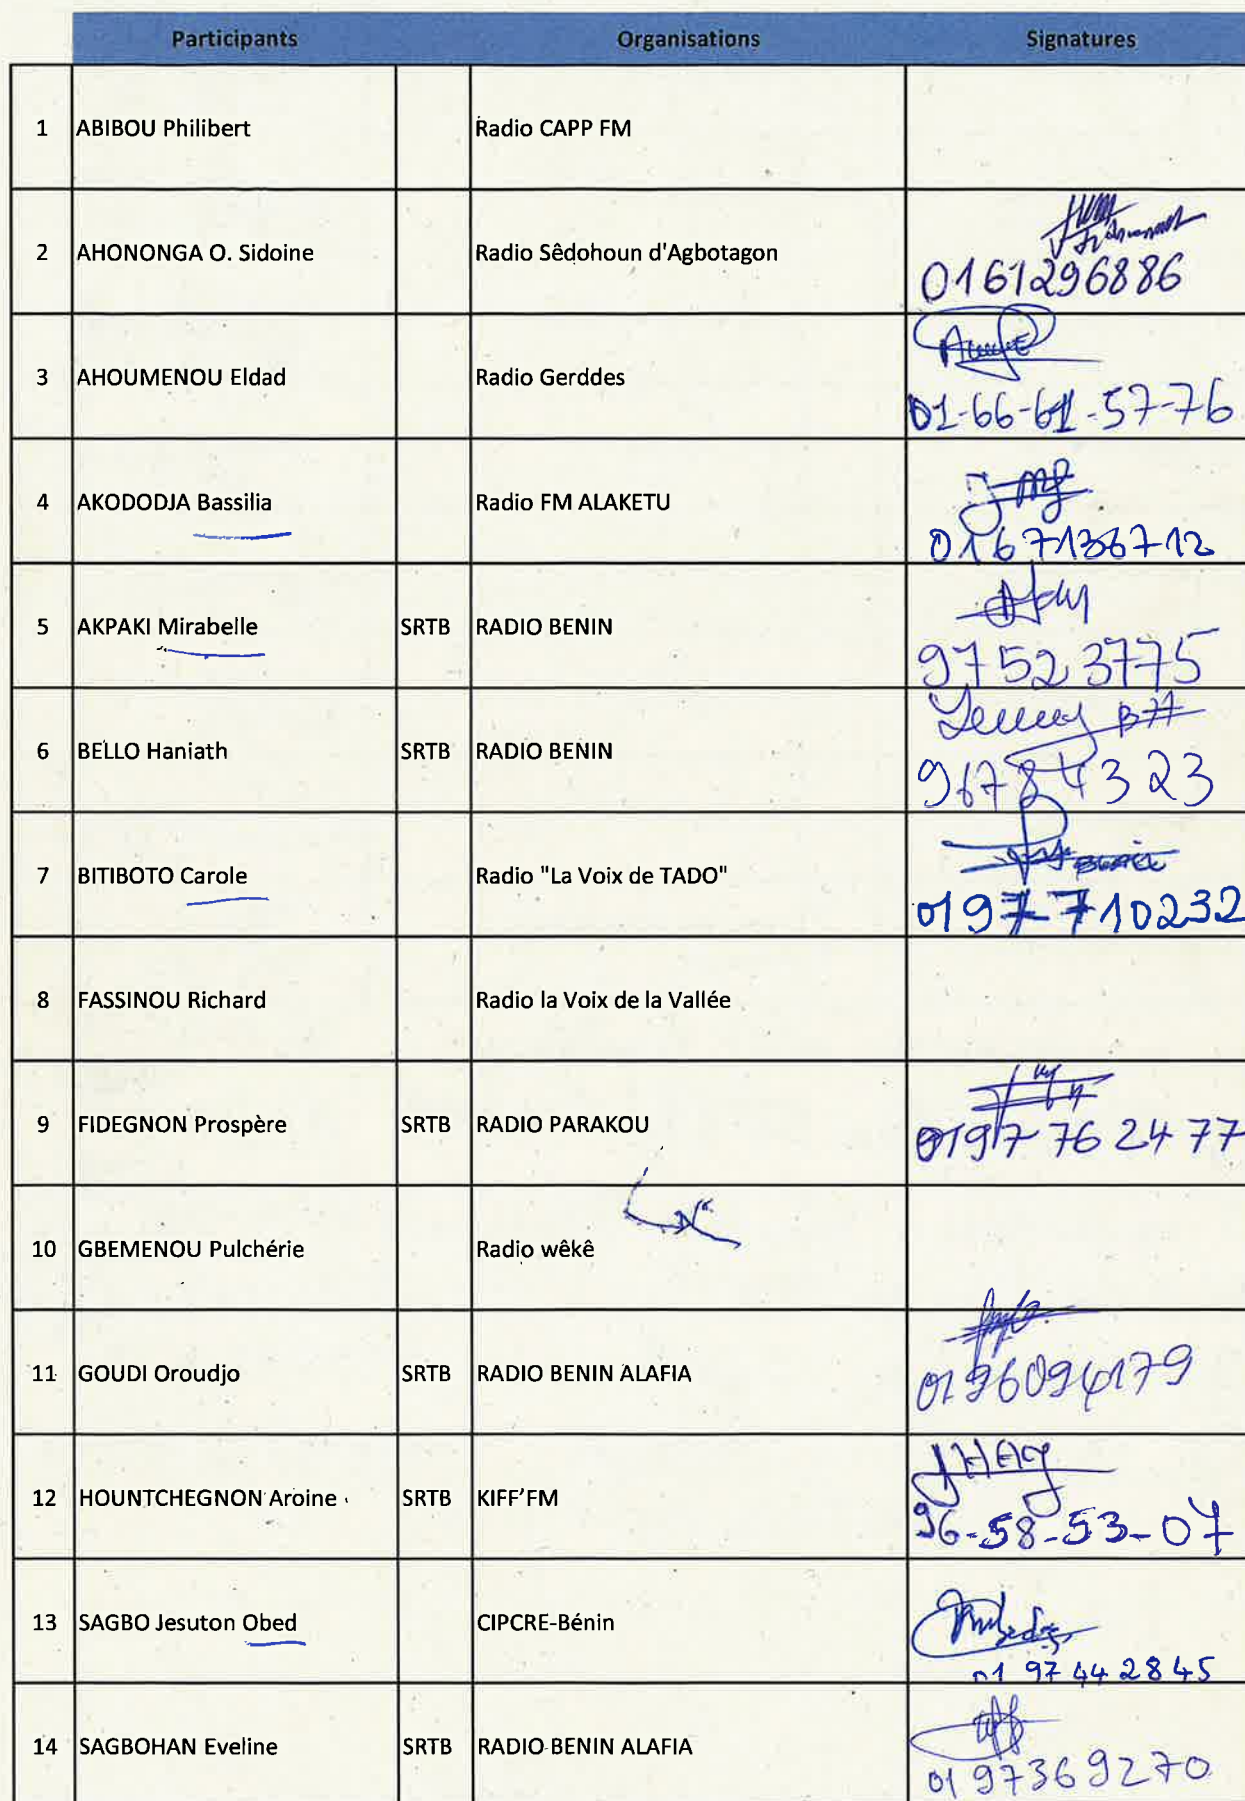 Participants Organisations Signatures
1 ABIBOU Philibert Radio CAPP FM
2 AHONONGA O. Sidoine Radio Sêdohoun d'Agbotagon
0161296886
3 AHOUMENOU Eldad Radio Gerddes
01-66-61-57-76
4 AKODODJA Bassilia Radio FM ALAKETU
0167136712
5 AKPAKI Mirabelle SRTB RADIO BENIN
97523775
6 BELLO Haniath SRTB RADIO BENIN
96784323
7 BITIBOTO Carole Radio "La Voix de TADO"
0197710232
8 FASSINOU Richard Radio la Voix de la Vallée
9 FIDEGNON Prospère SRTB RADIO PARAKOU
0197762477
10 GBEMENOU Pulchérie Radio wêkê
11 GOUDI Oroudjo SRTB RADIO BENIN ALAFIA
0196094179
12 HOUNTCHEGNON Aroine SRTB KIFF'FM
96-58-53-07
13 SAGBO Jesuton Obed CIPCRE-Bénin
01 97 44 28 45
14 SAGBOHAN Eveline SRTB RADIO BENIN ALAFIA
0197369270